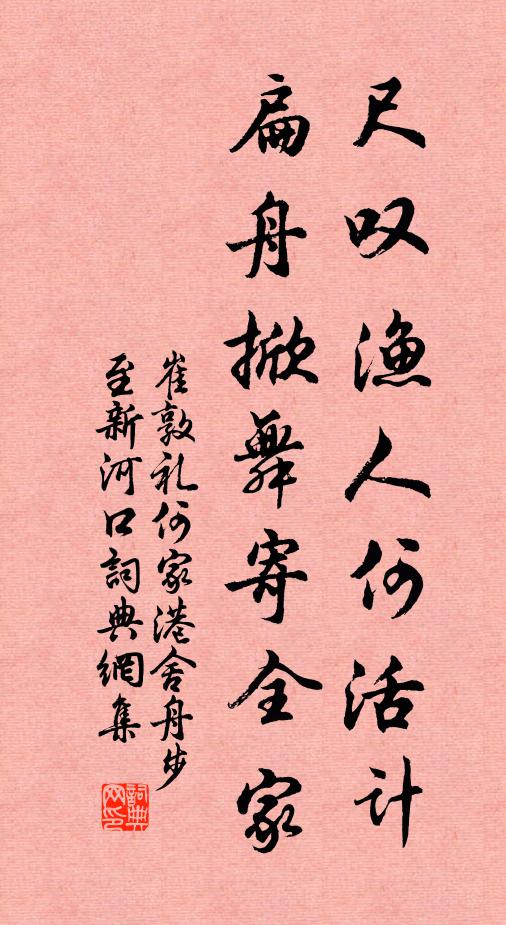 尺叹渔人何活计
扁舟掀舞寄全家
崔敦礼何家港舍舟步
至新河口詞典網集
詞典
网印